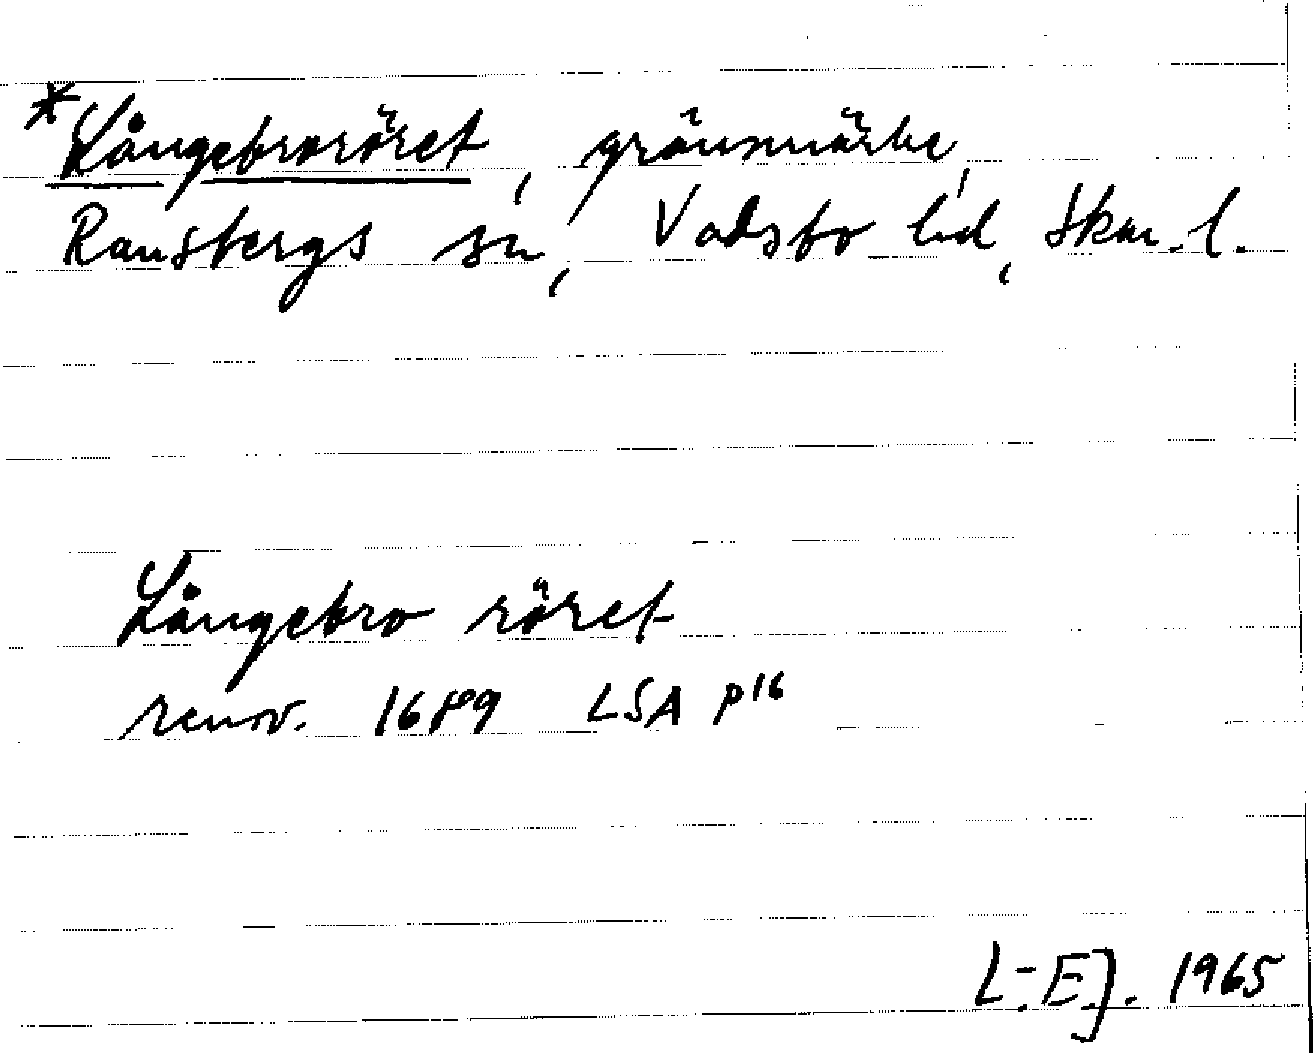 *Långebroröret, gränsmärke,
Ransbergs sn, Vadsbo hd, Skar. l.
Långebro röret
renov. 1689 LSA P16
L-EJ. 1965